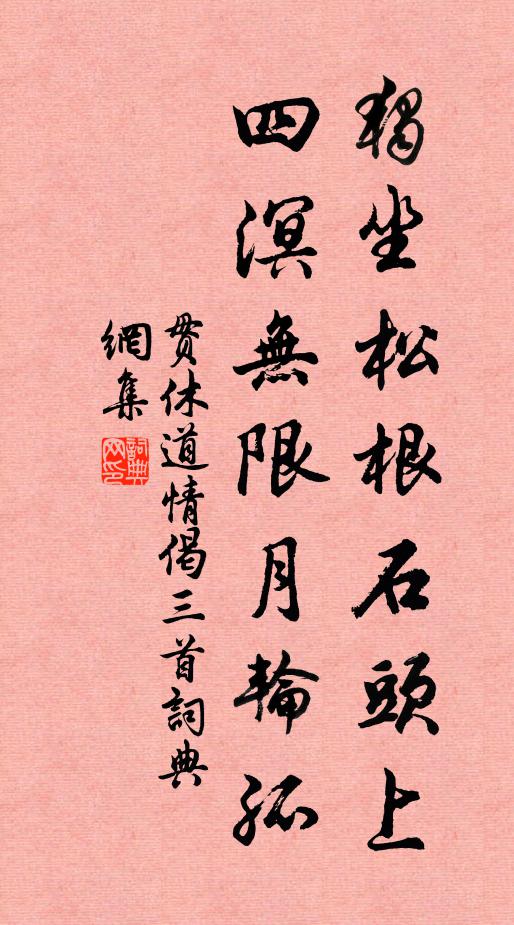 獨坐松根石頭上
四溟無限月輪孤
貫休道情偈三首詞典
網集
詞典網印